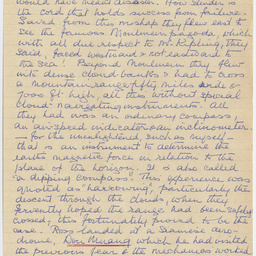 would have meant disaster. How slender is
the cord that holds success from failure.
Saved from this mishap they flew east to
see the famous Moulmein pagoda, which
with all due respect to Mr. Kipling, they
said, faced westward & not eastward to
the sea! Beyond Moulmein they flew
into dense cloud-banks & had to cross
a mountain range fifty miles wide &
7000 ft high, all this without special
cloud navigating instruments. All
they had was an ordinary compass,
an air-speed indicator & an inclinometer
– for the unenlightened such as myself –
that is an instrument to determine the
earth's magnetic force in relation to the
plane of the horizon. It is also called
"a dipping compass". This experience was
quoted as "harrowing", particularly the
descent through the clouds, when they
fervently hoped the range had been safely
crossed; this fortunately proved to be the
case. Ross landed at a Siamese aero-
drome, Don Muang which he had visited
the previous year & the mechanics worked